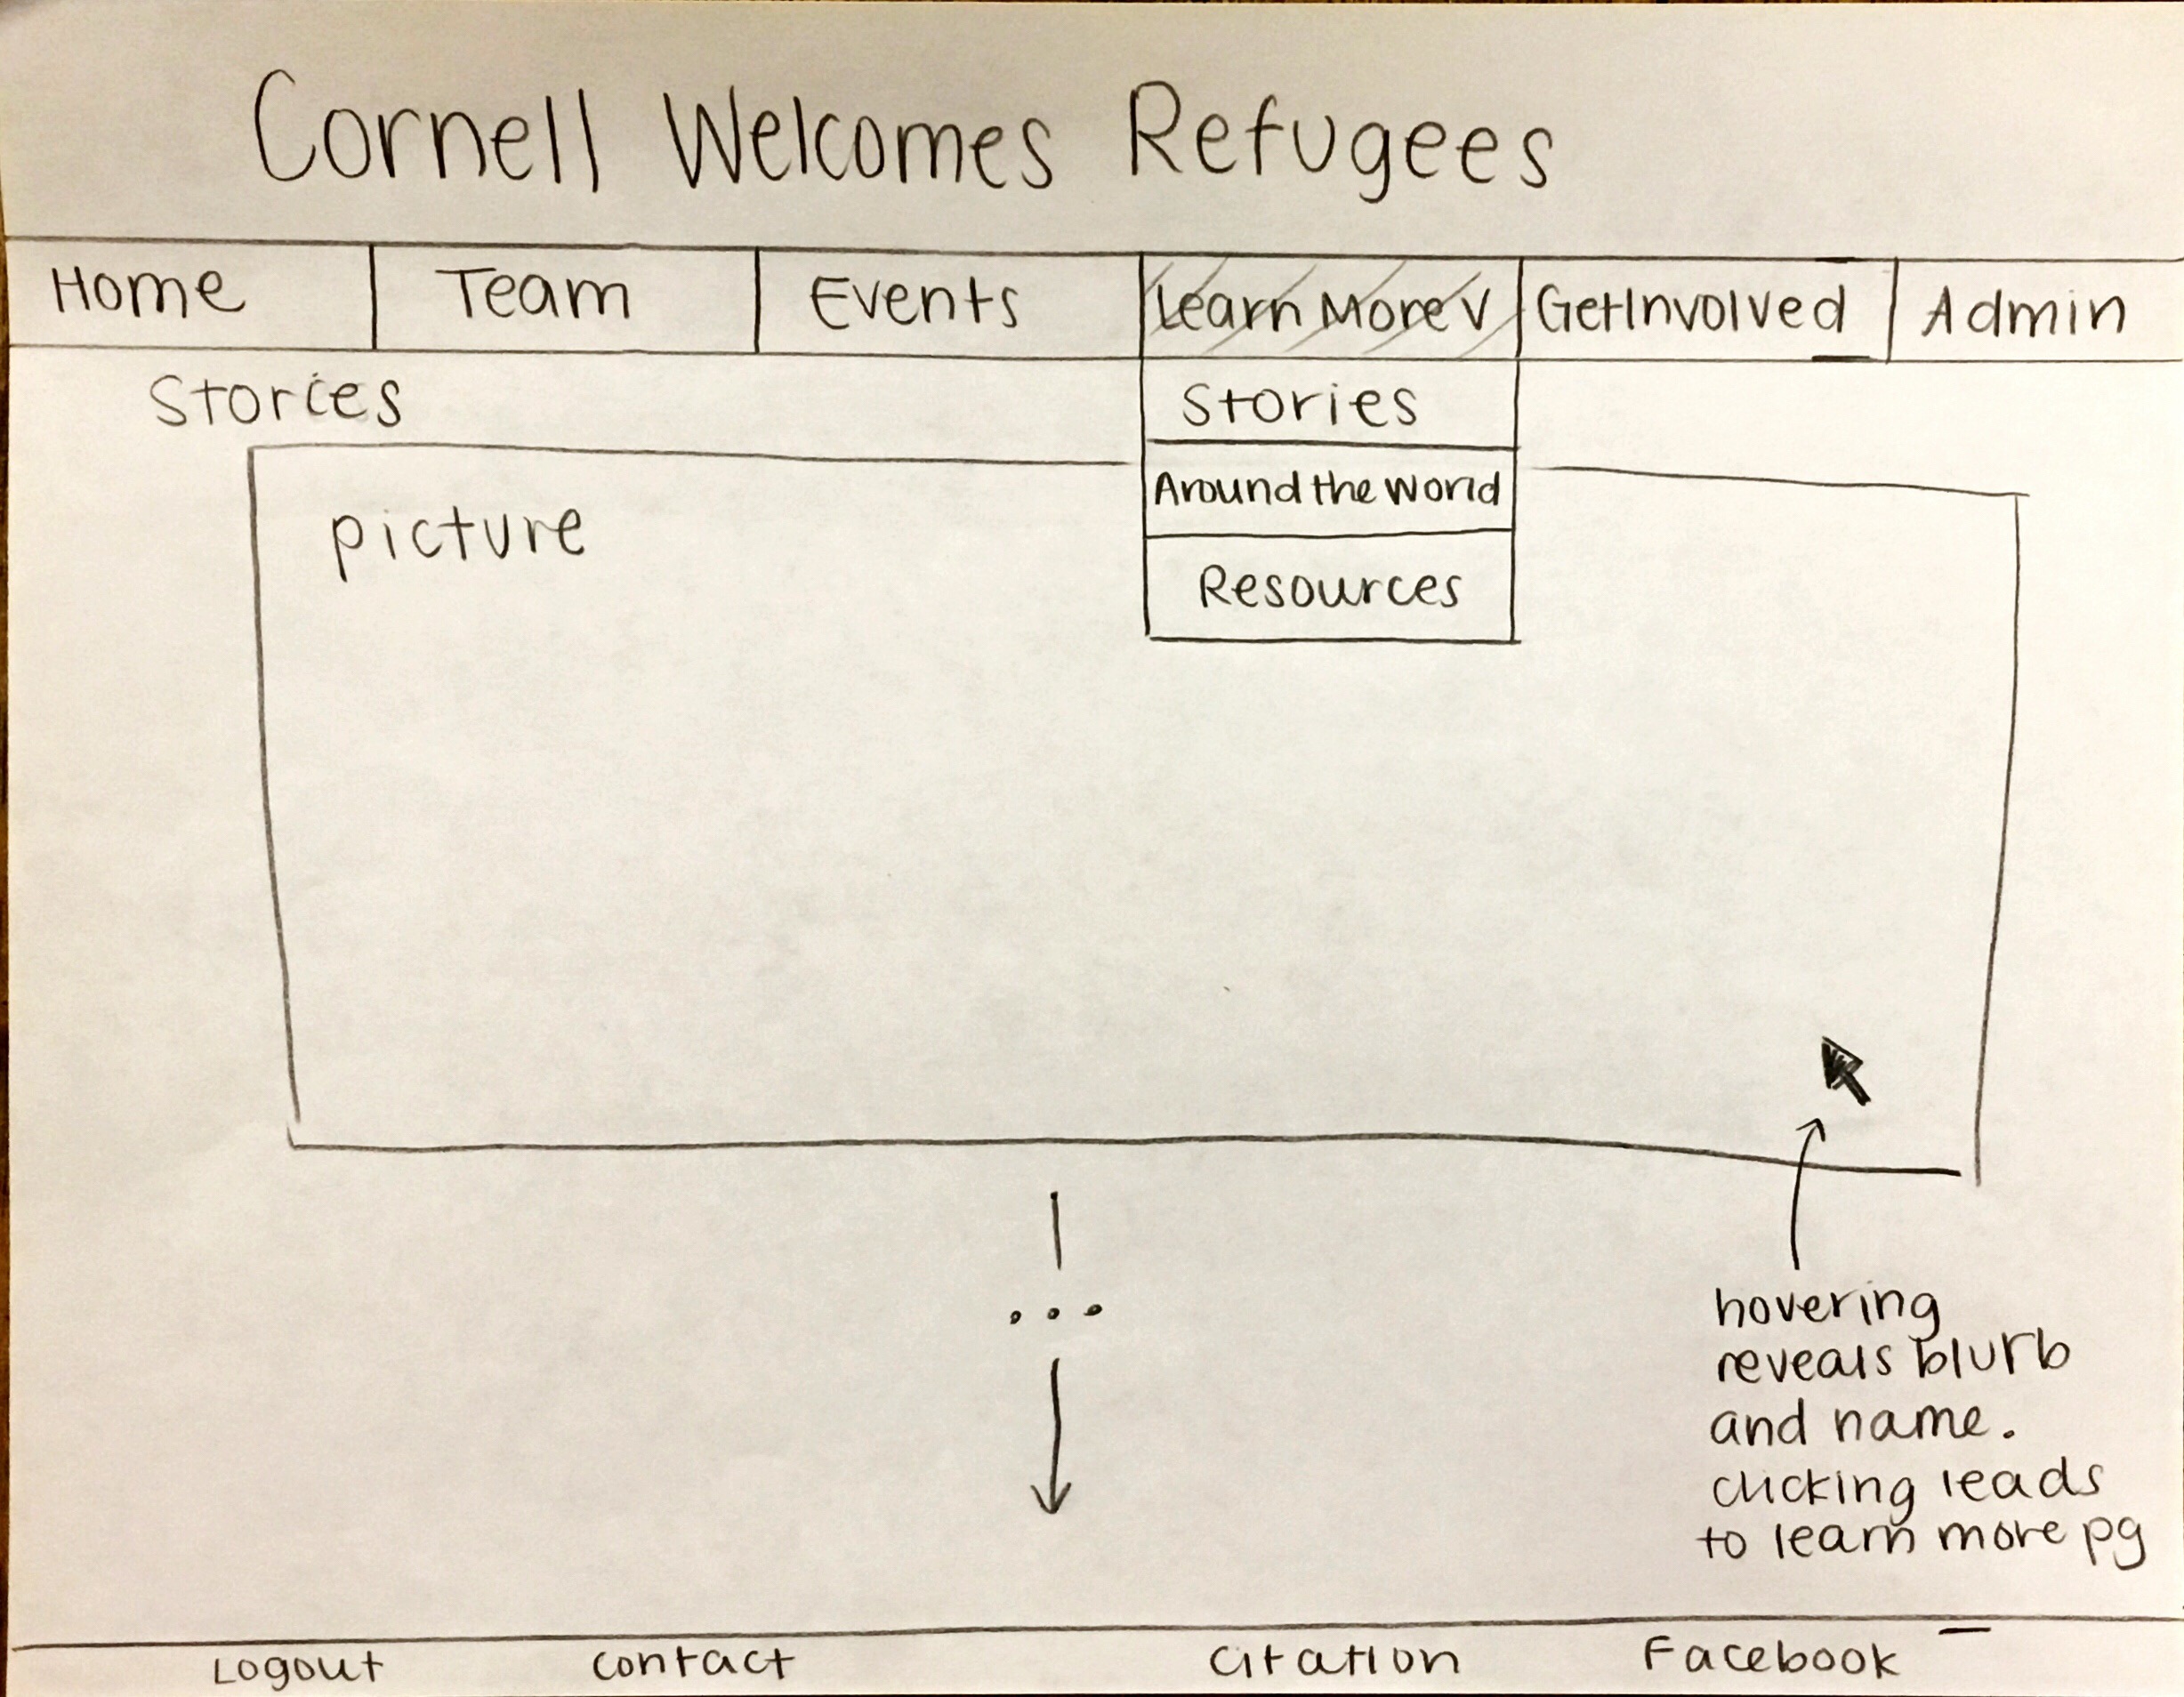 Cornell Welcomes Refugees
Home Team Events Learn More V GetInvolved Admin
Stories
Stories
Around the World
Resources
picture
hovering
reveals blurb
and name.
clicking leads
to learn more pg
Logout contact citation Facebook